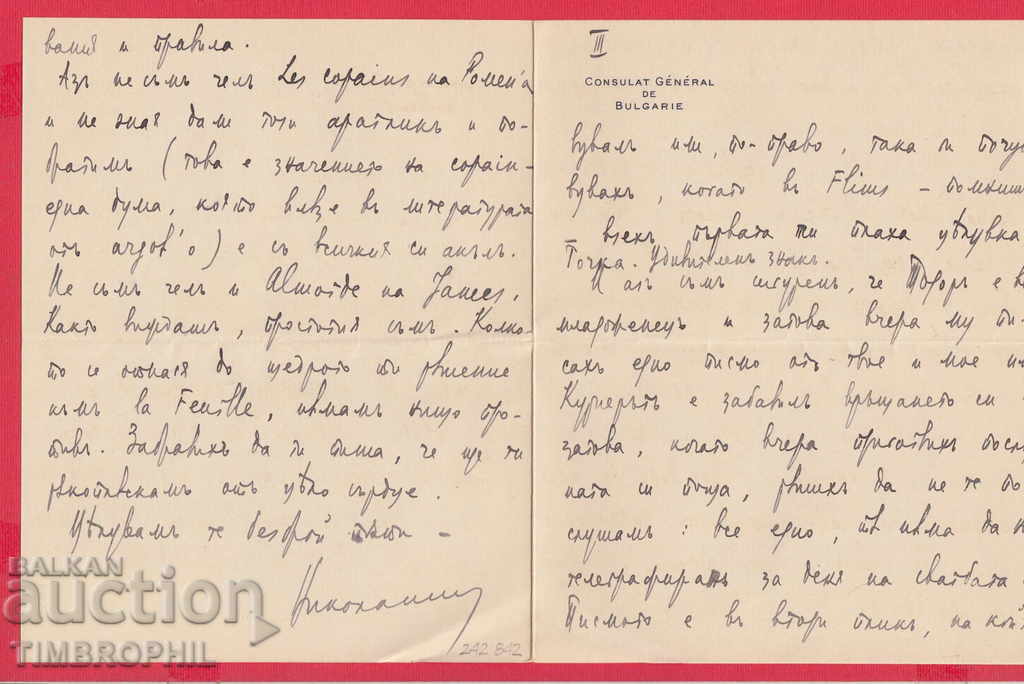 вания и правила.
Азъ не съмъ челъ Les copains на Ромен'а
и не зная дали този аратликъ и по-
братимъ (това е значението на copain-
една дума, която влезе въ литературата
отъ argot'о) е съ всичкия си акълъ.
Не съмъ челъ и Almaïde на Jammes.
Както виждашъ, простотия съмъ. Колко-
то се отнася до щедрото ти решение
къмъ la Feuille, нѣмамъ нищо про-
тивъ. Забравихъ да ти пиша, че ще ти
рѫкоплѣскамъ отъ цѣло сърдце.
Цѣлувамъ те безброй пѫти –
242 842
III
CONSULAT GÉNÉRAL
DE
BULGARIE
вувамъ или, по-право, така ги почув
вувахъ, когато въ Flims – помниш
взехъ първата ти плаха цѣлувка
Точка. Удивителенъ знакъ.
И азъ съмъ сигуренъ, че Тодоръ е ве
младоженецъ и затова вчера му пи-
сахъ едно писмо отъ твое и мое и
Куриерътъ е забавилъ връщането си
затова, когато вчера приготвихъ посл
ната си поща, рѣшихъ да не те по
слушамъ: все едно, тѣ нѣма да
телеграфиратъ за деня на сватбата
Писмото е въ втори пликъ, на кой
BALKAN
auction
TIMBROPHIL